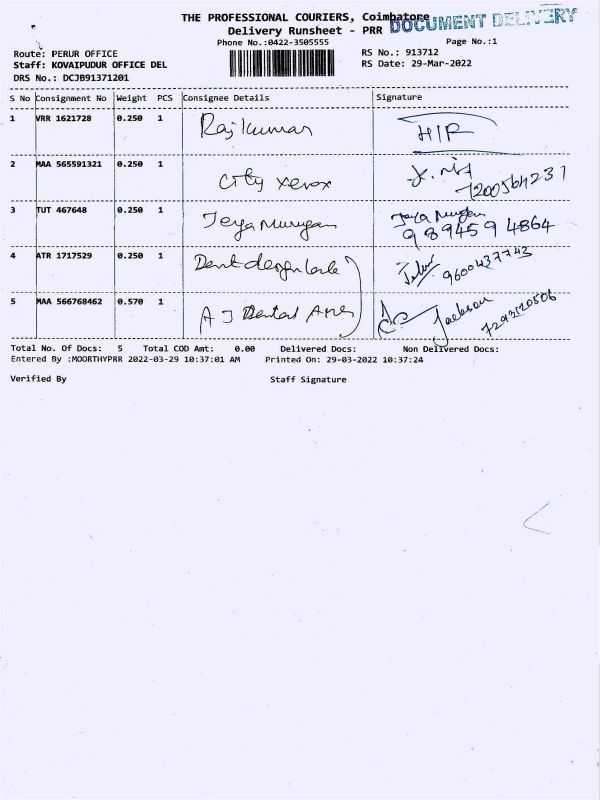 THE PROFESSIONAL COURIERS, Coimbatore
DOCUMENT DELIVERY
Delivery Runsheet - PRR
Phone No.:0422-3505555 Page No.:1
Route: PERUR OFFICE RS No.: 913712
Staff: KOVAIPUDUR OFFICE DEL RS Date: 29-Mar-2022
DRS No.: DCJB91371201
S No Consignment No Weight PCS Consignee Details Signature
1 VRR 1621728 0.250 1 Rajkumar HIP
2 MAA 565591321 0.250 1 City xerox
7200564231
3 TUT 467648 0.250 1 Jeya Murugan Jeya Murugan
9894594864
4 ATR 1717529 0.250 1 9600437743
5 MAA 566768462 0.570 1 A J Dental Jackson
Total No. Of Docs: 5 Total COD Amt: 0.00 Delivered Docs: Non Delivered Docs:
Entered By :MOORTHYPRR 2022-03-29 10:37:01 AM Printed On: 29-03-2022 10:37:24
Verified By Staff Signature